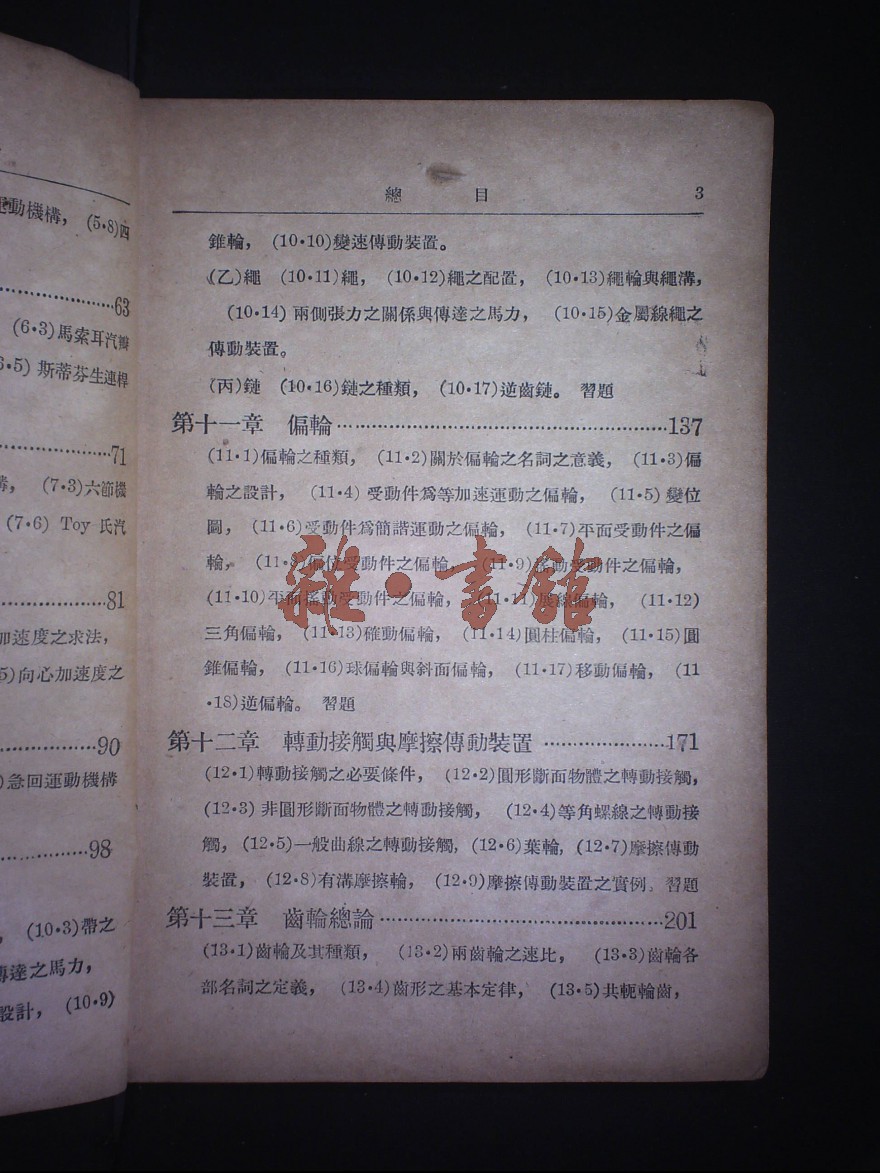 運動機構， (5·8)四
63
(6·3)馬索耳汽瓣
6·5) 斯蒂芬生連桿
71
(7·3)六節機
(7·6) Toy 氏汽
81
加速度之求法，
5)向心加速度之
90
)急回運動機構
98
， (10·3)帶之
傳達之馬力，
設計， (10·9)
總 目 3
錐輪， (10·10)變速傳動裝置。
(乙)繩 (10·11)繩， (10·12)繩之配置， (10·13)繩輪與繩溝，
(10·14) 兩側張力之關係與傳達之馬力， (10·15)金屬線繩之
傳動裝置。
(丙)鏈 (10·16)鏈之種類， (10·17)逆齒鏈。 習題
第十一章 偏輪……………………………………………137
(11·1)偏輪之種類， (11·2)關於偏輪之名詞之意義， (11·3)偏
輪之設計， (11·4) 受動件爲等加速運動之偏輪， (11·5) 變位
圖， (11·6)受動件爲簡諧運動之偏輪， (11·7)平面受動件之偏
輪， (11·8)偏位受動件之偏輪， (11·9)搖動受動件之偏輪，
(11·10)平面搖動受動件之偏輪， (11·11)展線偏輪， (11·12)
三角偏輪， (11·13)確動偏輪， (11·14)圓柱偏輪， (11·15)圓
錐偏輪， (11·16)球偏輪與斜面偏輪， (11·17)移動偏輪， (11
·18)逆偏輪。 習題
第十二章 轉動接觸與摩擦傳動裝置 …………………171
(12·1)轉動接觸之必要條件， (12·2)圓形斷面物體之轉動接觸，
(12·3) 非圓形斷面物體之轉動接觸， (12·4)等角螺線之轉動接
觸， (12·5)一般曲線之轉動接觸, (12·6)葉輪, (12·7)摩擦傳動
裝置， (12·8)有溝摩擦輪， (12·9)摩擦傳動裝置之實例。習題
第十三章 齒輪總論……………………………………201
(13·1)齒輪及其種類， (13·2)兩齒輪之速比， (13·3)齒輪各
部名詞之定義， (13·4)齒形之基本定律， (13·5)共軛輪齒，
雜·書館